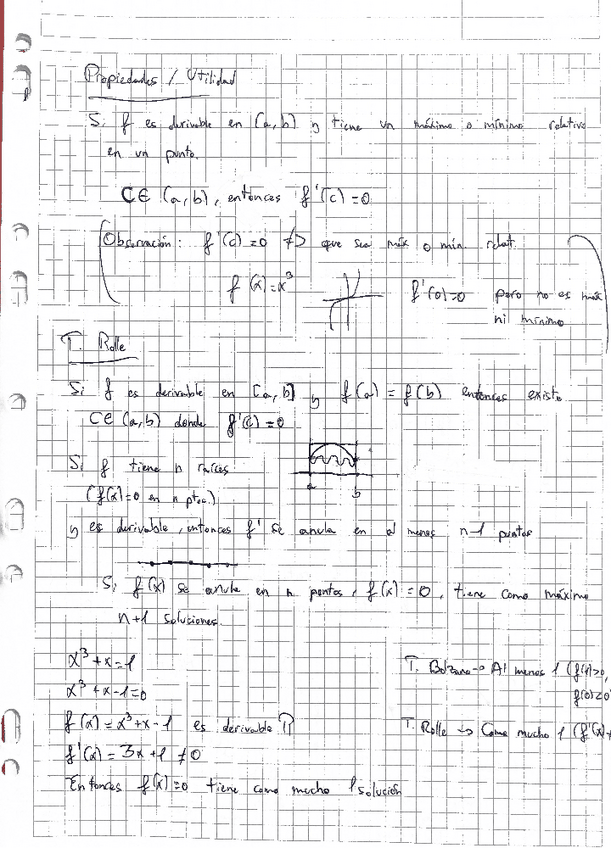 Propiedades / Utilidad
Si f es derivable en (a,b) y tiene un máximo o mínimo relativo
en un punto.
C ∈ (a,b), entonces f'(c)=0
Observación: f'(c)=0 ≠> que sea máx o mín. relat.
f(x)=x³
f'(0)=0 pero no es máx
ni mínimo
T. Rolle
Si f es derivable en [a,b] y f(a) = f(b) entonces existe
C ∈ (a,b) donde f'(c)=0
Si f tiene n raíces
(f(x)=0 en n ptos.)
a b
y es derivable, entonces f' se anula en al menos n-1 puntos
Si f(x) se anula en n puntos, f(x)=0, tiene como máximo
n+1 soluciones
x³+x=1
T. Bolzano -> Al menos 1 (f(1)>0,
x³+x-1=0
f(0)<0
f(x)=x³+x-1 es derivable
T. Rolle -> Como mucho 1 (f'(x)≠
f'(x)=3x+1 ≠0
Entonces f(x)=0 tiene como mucho 1 solución